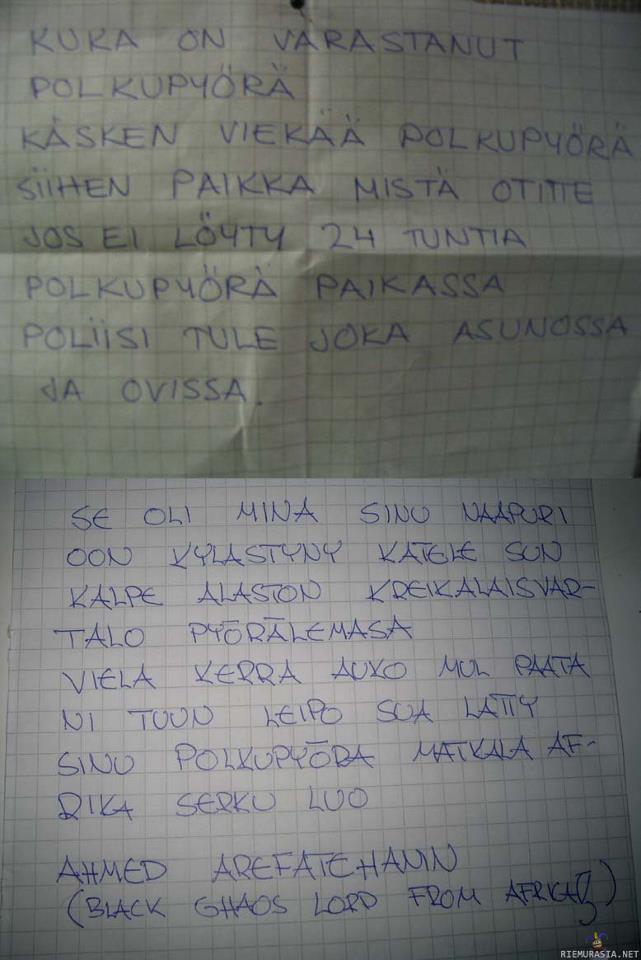 KUKA ON VARASTANUT
POLKUPYÖRÄ
KÄSKEN VIEKÄÄ POLKUPYÖRÄ
SIIHEN PAIKKA MISTÄ OTITTE
JOS EI LÖYTY 24 TUNTIA
POLKUPYÖRÄ PAIKASSA
POLIISI TULE JOKA ASUNOSSA
JA OVISSA.
SE OLI MINA SINU NAAPURI
OON KYLASTYNY KATELE SUN
KALPE ALASTON KREIKALAISVAR-
TALO PYÖRÄLEMASA
VIELA KERRA AUKO MUL PAATA
NI TUUN LEIPO SUA LATTY
SINU POLKUPYÖRA MATKALA AF-
RIKA SERKU LUO
AHMED AREFATEHANIN
(BLACK GHAOS LORD FROM AFRICA)
RIEMURASIA.NET